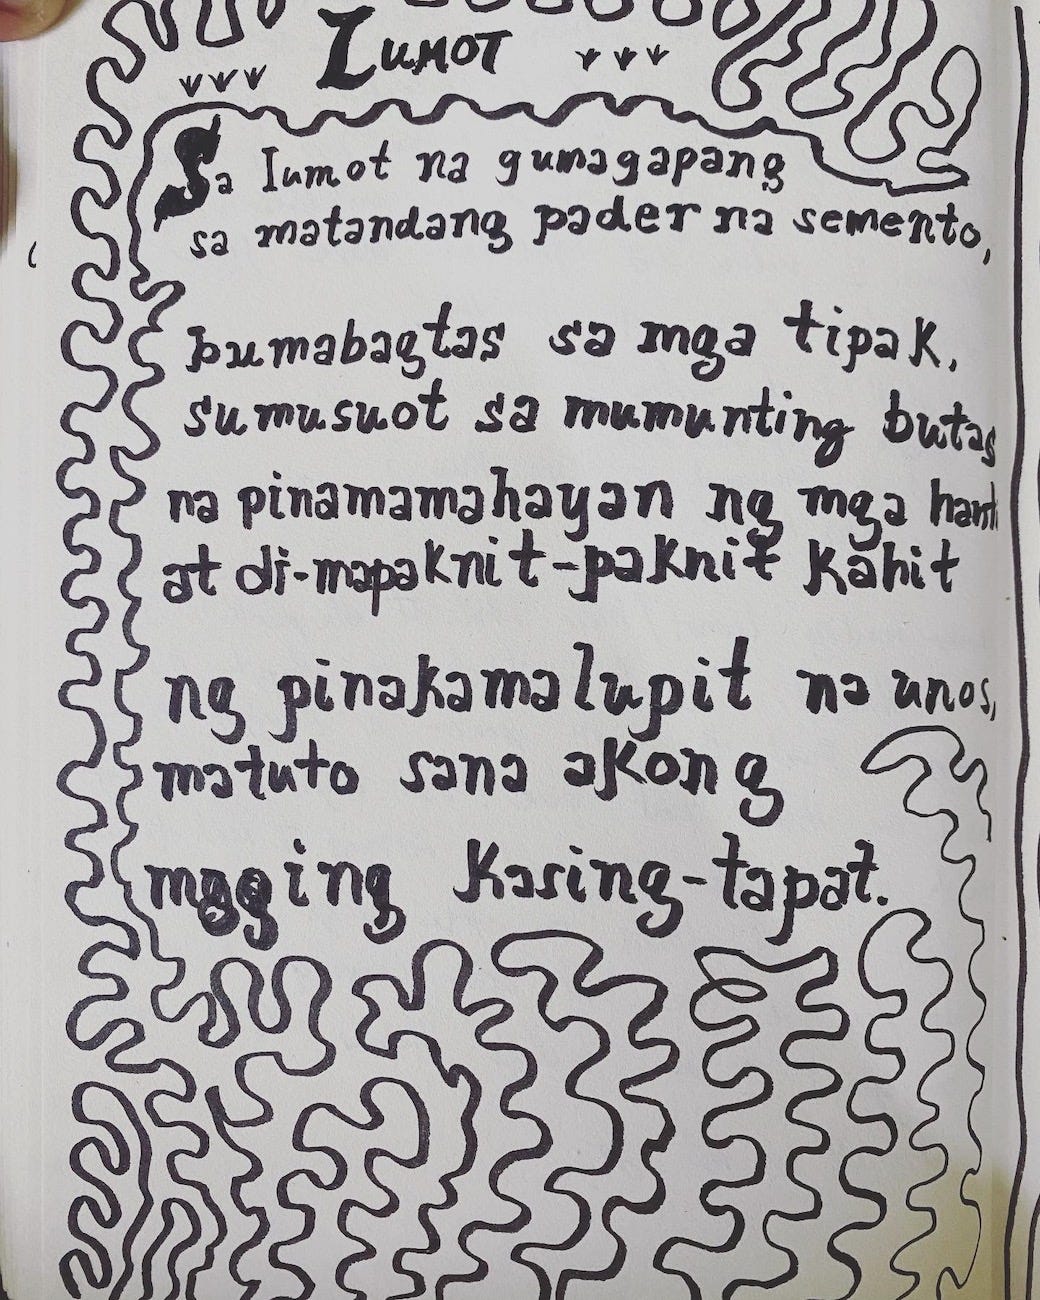 Lumot
Sa lumot na gumagapang
sa matandang pader na semento,
bumabagtas sa mga tipak,
sumusuot sa mumunting butas
na pinamamahayan ng mga hantik
at di-mapaknit-paknit kahit
ng pinakamalupit na unos,
matuto sana akong
maging kasing-tapat.